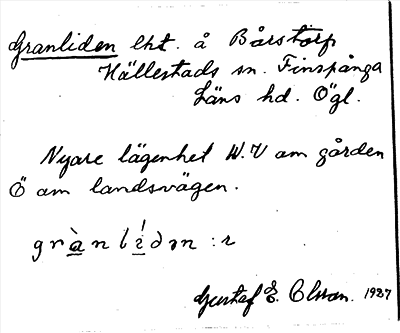 Granliden lht. å Bårstorp
Hällestads sn. Finspånga
Läns hd. Ögl.
Nyare lägenhet N.V om gården
Ö om landsvägen.
grànlídən : r
Gustaf E. Olsson. 1927